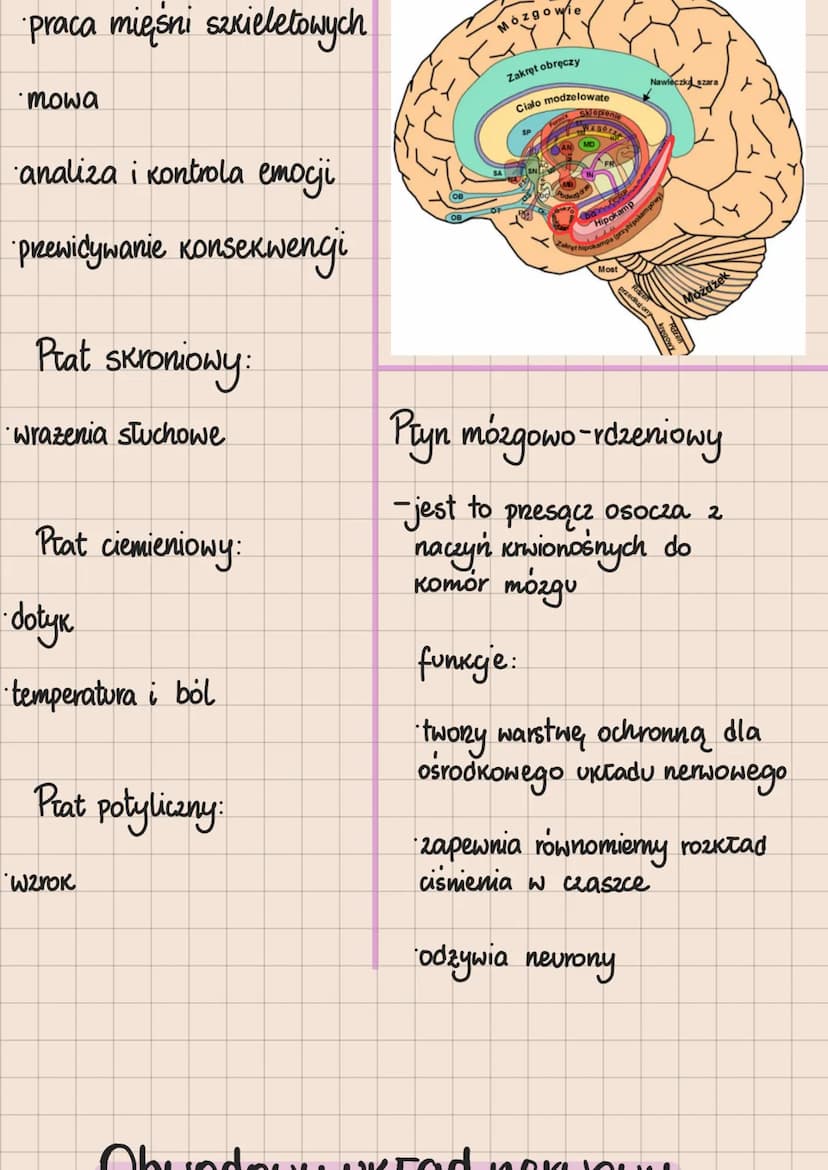 ·praca mięśni szkieletowych
·mowa
·analiza i kontrola emocji
·przewidywanie konsekwencji
Płat skroniowy:
·wrażenia słuchowe
Płat ciemieniowy:
·dotyk
·temperatura i ból
Płat potyliczny:
·wzrok
Mózgowie
Zakręt obręczy
Nawleczka szara
Ciało modzelowate
Sklepienie
Wzgórze
SP
AN
MD
FR
SA
SN
IN
MB
OB
OB
OT
DG
Hipokamp
Zakręt hipokampa (przyhipokampowy)
Most
Móżdżek
Rdzeń przedłużony
Rdzeń kręgowy
Płyn mózgowo-rdzeniowy
-jest to przesącz osocza z
naczyń krwionośnych do
komór mózgu
funkcje:
·tworzy warstwę ochronną dla
ośrodkowego układu nerwowego
·zapewnia równomierny rozkład
ciśnienia w czaszce
·odżywia neurony
Obwodowy układ nerwowy